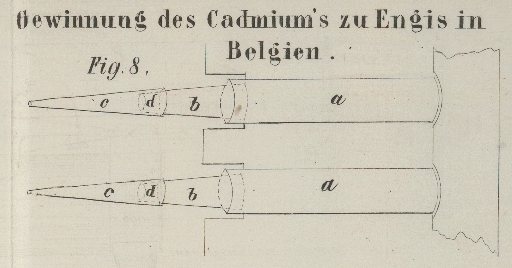 Gewinnung des Cadmium's zu Engis in
Belgien.
Fig. 8.
c d b a
c d b a